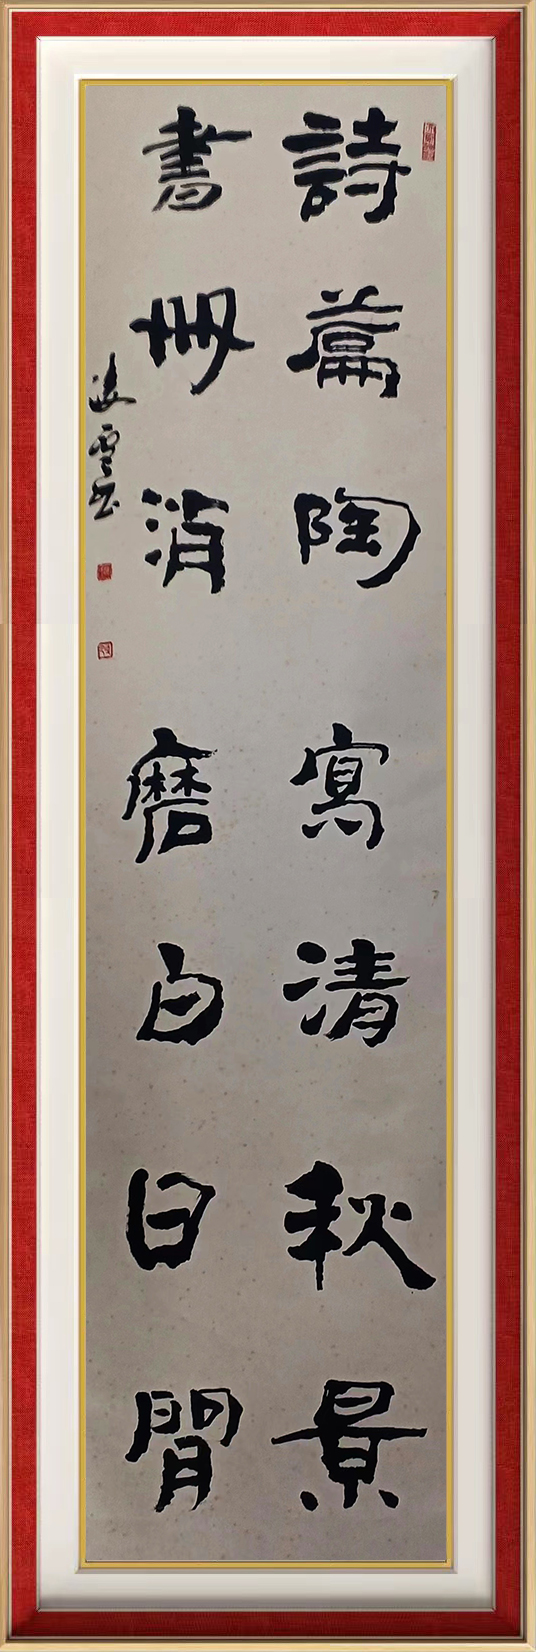 詩篇陶寫清秋景
書冊消磨白日閒
凌雲書